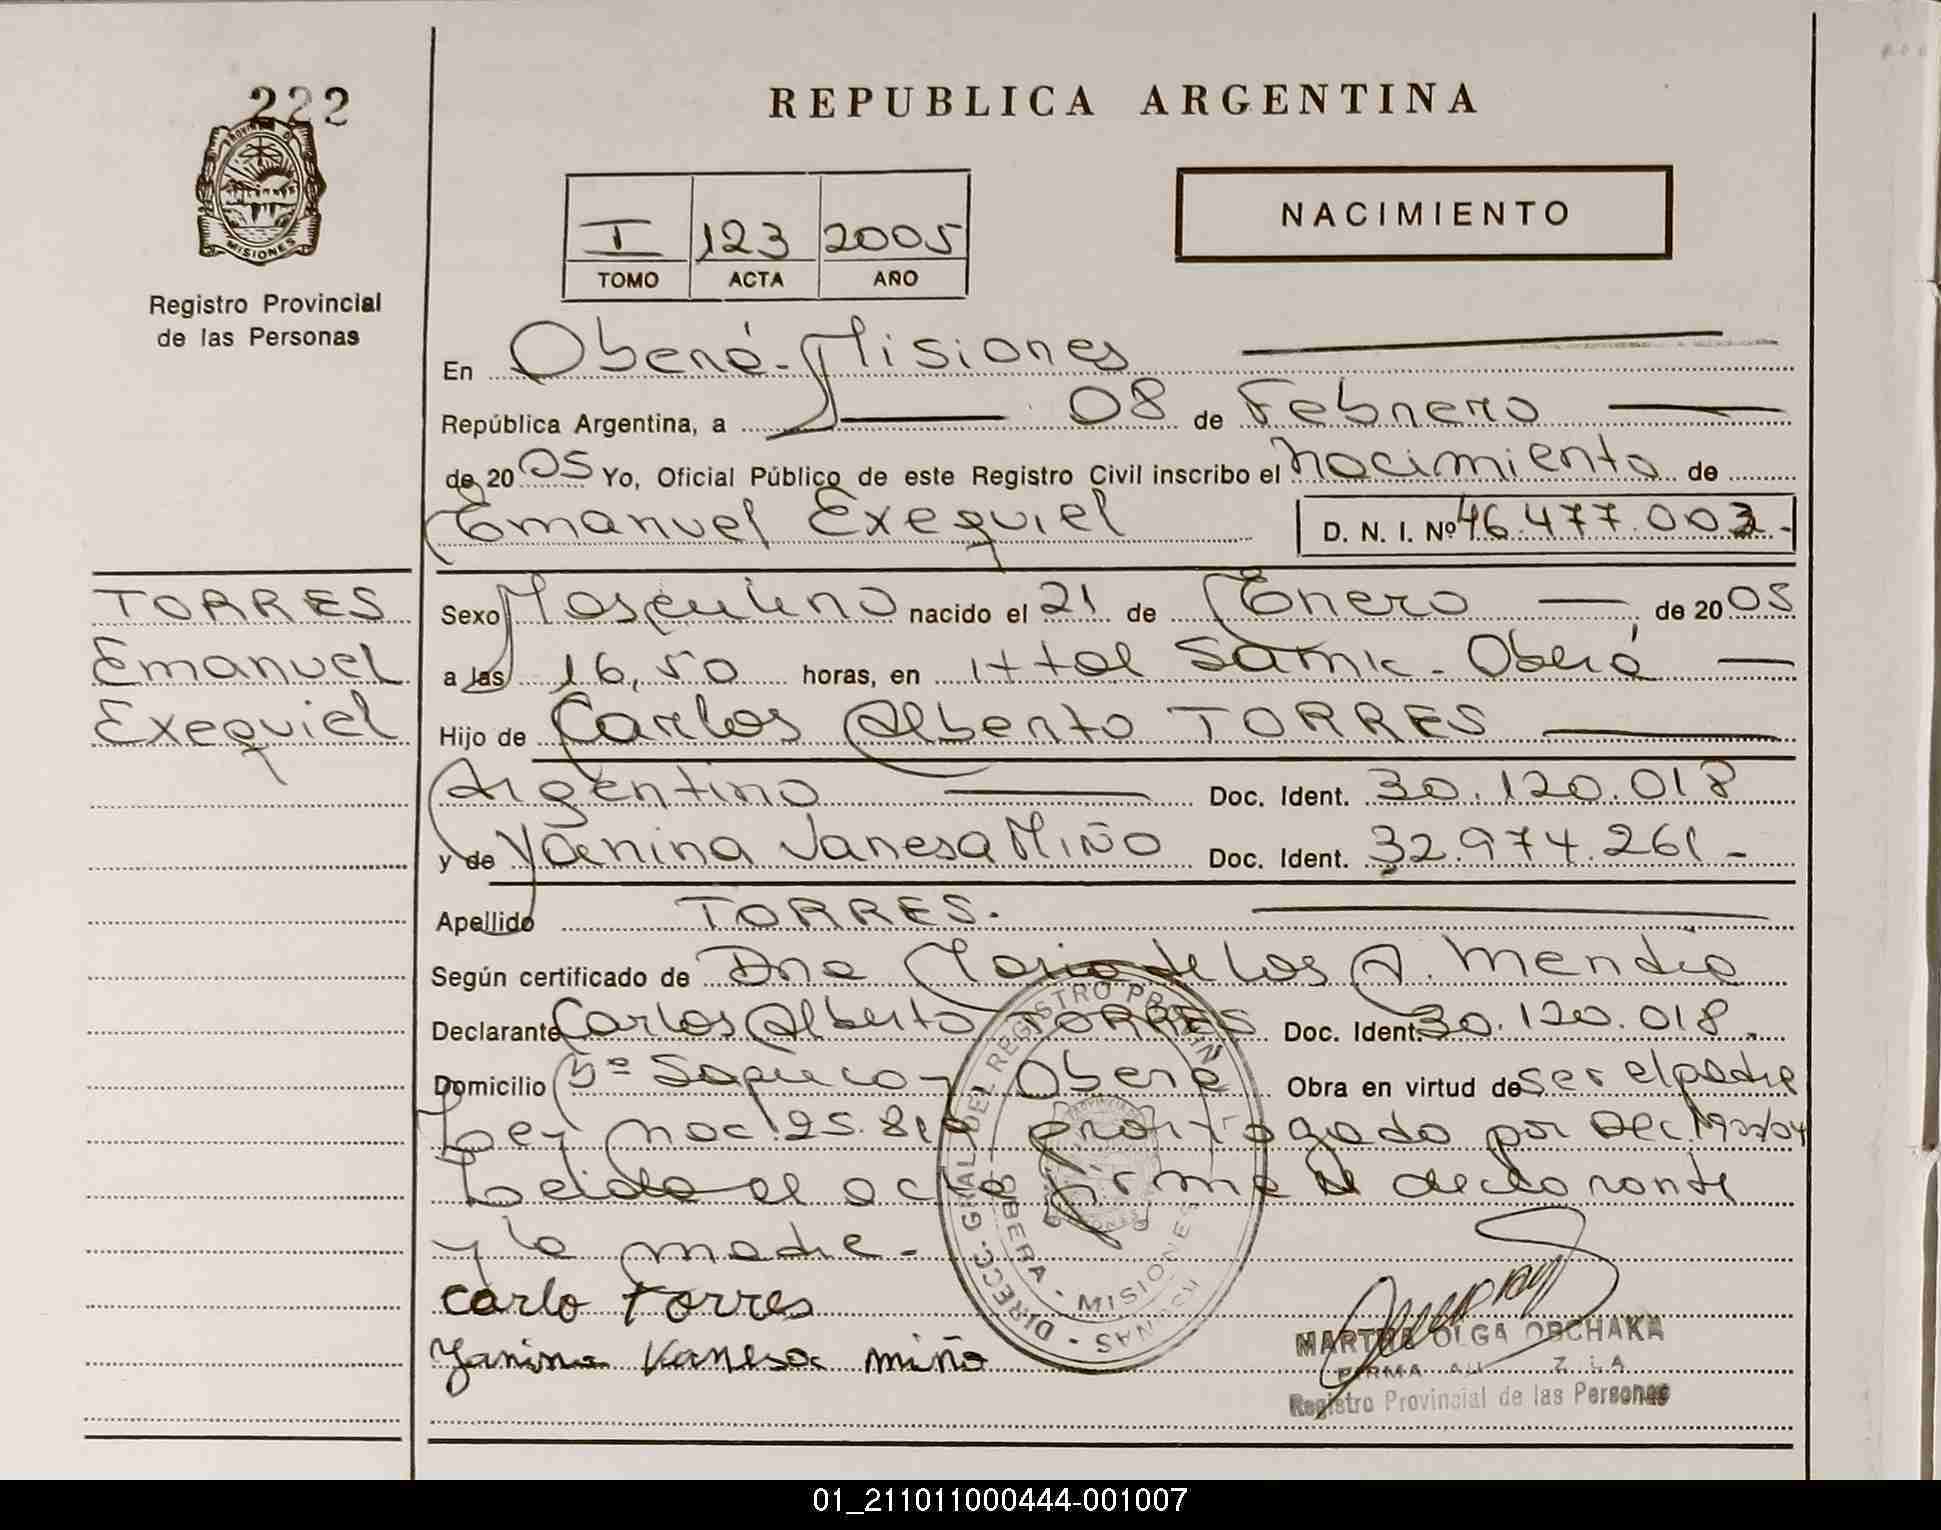 222
PROVINCIA D
MISIONES
Registro Provincial
de las Personas
REPUBLICA ARGENTINA
I 123 2005
TOMO ACTA AÑO
NACIMIENTO
En Oberá - Misiones
República Argentina, a 08 de Febrero
de 20 05 Yo, Oficial Público de este Registro Civil inscribo el nacimiento de
Emanuel Exequiel D. N. I. Nº 46.477.003.-
TORRES
Emanuel
Exequiel
Sexo Masculino nacido el 21 de Enero de 20 05
a las 16,50 horas, en Htal Samic - Oberá
Hijo de Carlos Alberto TORRES
Argentino Doc. Ident. 30.120.018
y de Yanina Vanesa MIÑO Doc. Ident. 32.974.261 -
Apellido TORRES.
Según certificado de Dra Maria de los A.
Declarante Carlos Alberto TORRES Doc. Ident. 30.120.018.
Domicilio Oberá Obra en virtud de ser el padre
Ley Nac. 25.819 prorrogado por Dec.
Leida el acta firma el declarante
y la madre -
Carlo Torres
Yanina Vanesa miño
DIRECC. GRAL DEL REGISTRO PROVIN
OBERA - MISIONES
MARTHA OLGA OBCHAKA
FIRMA
Registro Provincial de las Personas
01_211011000444-001007